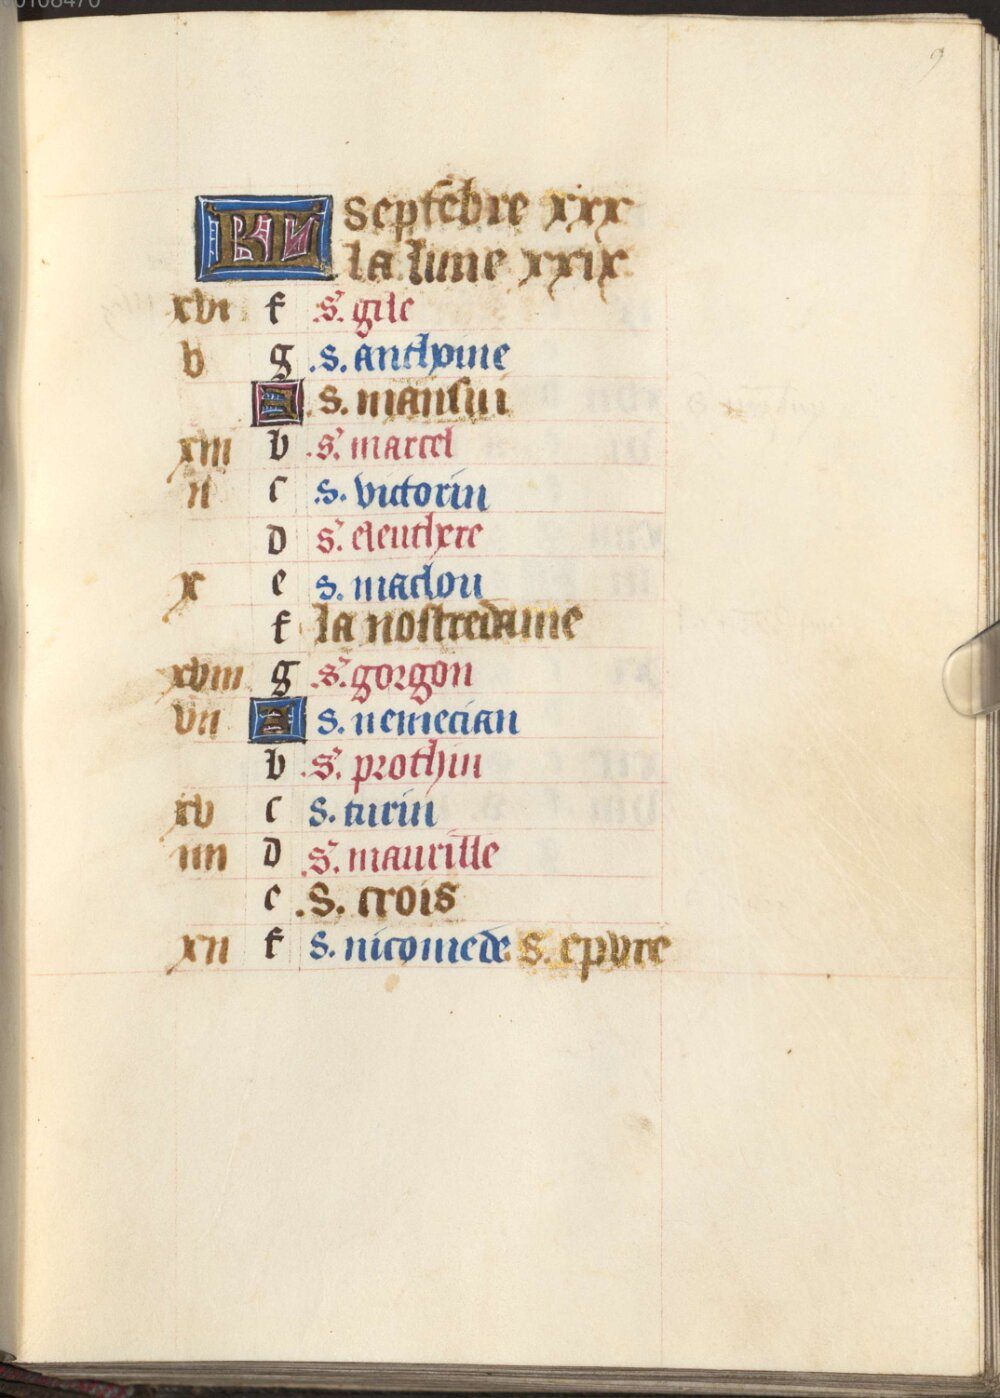 00108470
9
KL Septẽbre xxx
la lune xxix
xvi f s. gile
v g .s. anthoine
A .s. mansui
xiii b .s. marcel
ii c .s. victorin
d s. eleuthere
x e s. maclou
f la nostredame
xviii g .s. gorgon
vii A s. nemecian
b .s. prothin
xv c s. turin
iiii d .s. maurille
e .s. crois
xii f s. nicomede. s. epvre